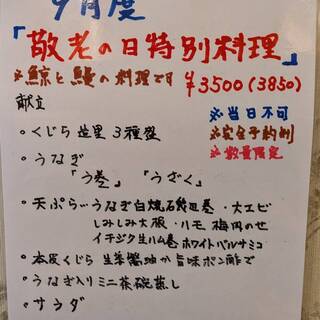 9月度
「敬老の日特別料理」
※鯨と鰻の料理です ¥3500(3850)
献立 ※当日不可
・くじら造里3種盛 ※完全予約制
・うなぎ ※数量限定
「う巻」「うざく」
・天ぷら…うなぎ白焼石磯辺巻・大エビ
しみしみ大根・ハモ梅肉のせ
イチジク生ハム巻ホワイトバルサミコ
・本皮くじら 生姜醤油か旨味ポン酢で
・うなぎ入りミニ茶碗蒸し
・サラダ